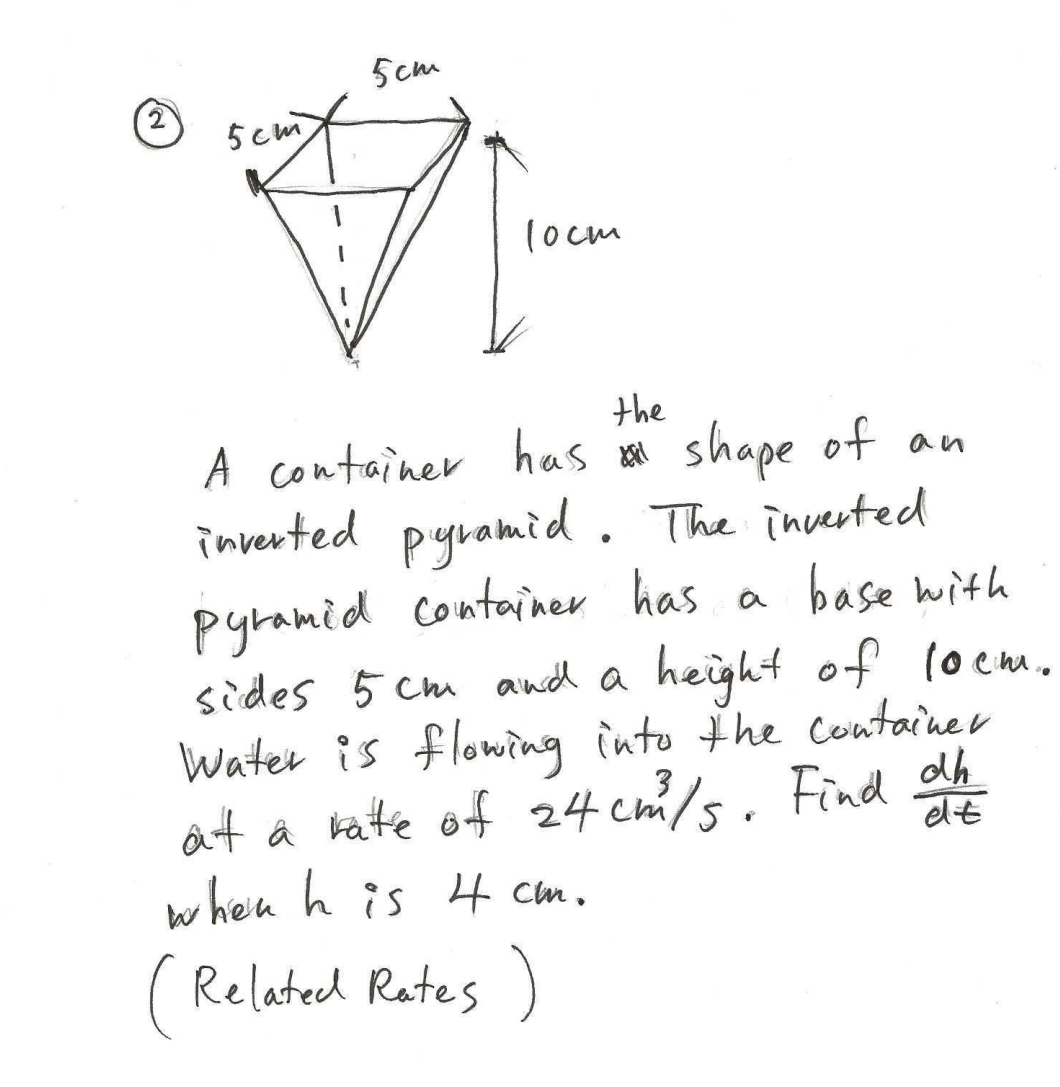 ②
5 cm
5 cm
10 cm
the
A container has shape of an
inverted pyramid. The inverted
pyramid container has a base with
sides 5 cm and a height of 10 cm.
Water is flowing into the container
at a rate of 24 cm³/s. Find dh/dt
when h is 4 cm.
(Related Rates)